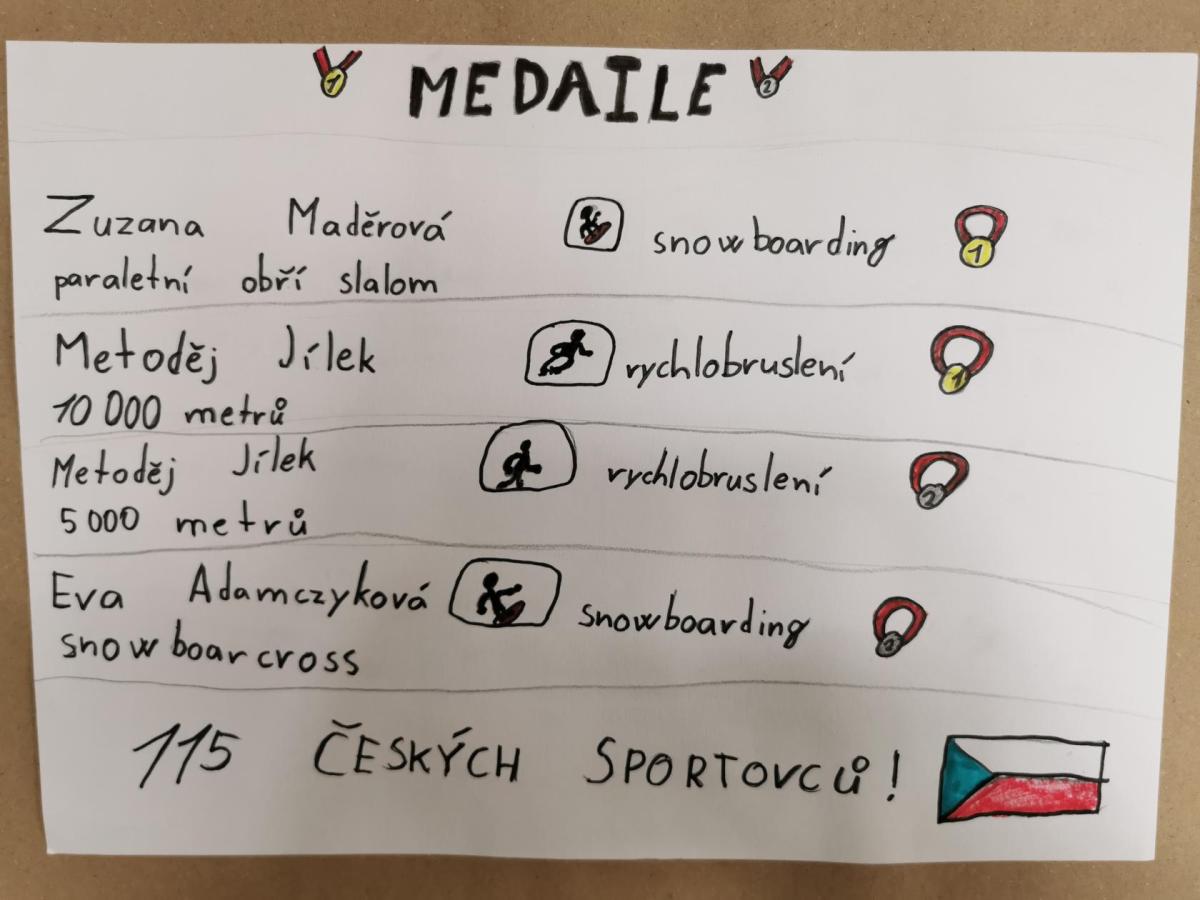 1 MEDAILE 2
Zuzana Maděrová snowboarding 1
paraletní obří slalom
Metoděj Jílek rychlobruslení 1
10 000 metrů
Metoděj Jílek rychlobruslení 2
5 000 metrů
Eva Adamczyková snowboarding 2
snowboarcross
115 ČESKÝCH SPORTOVCŮ!